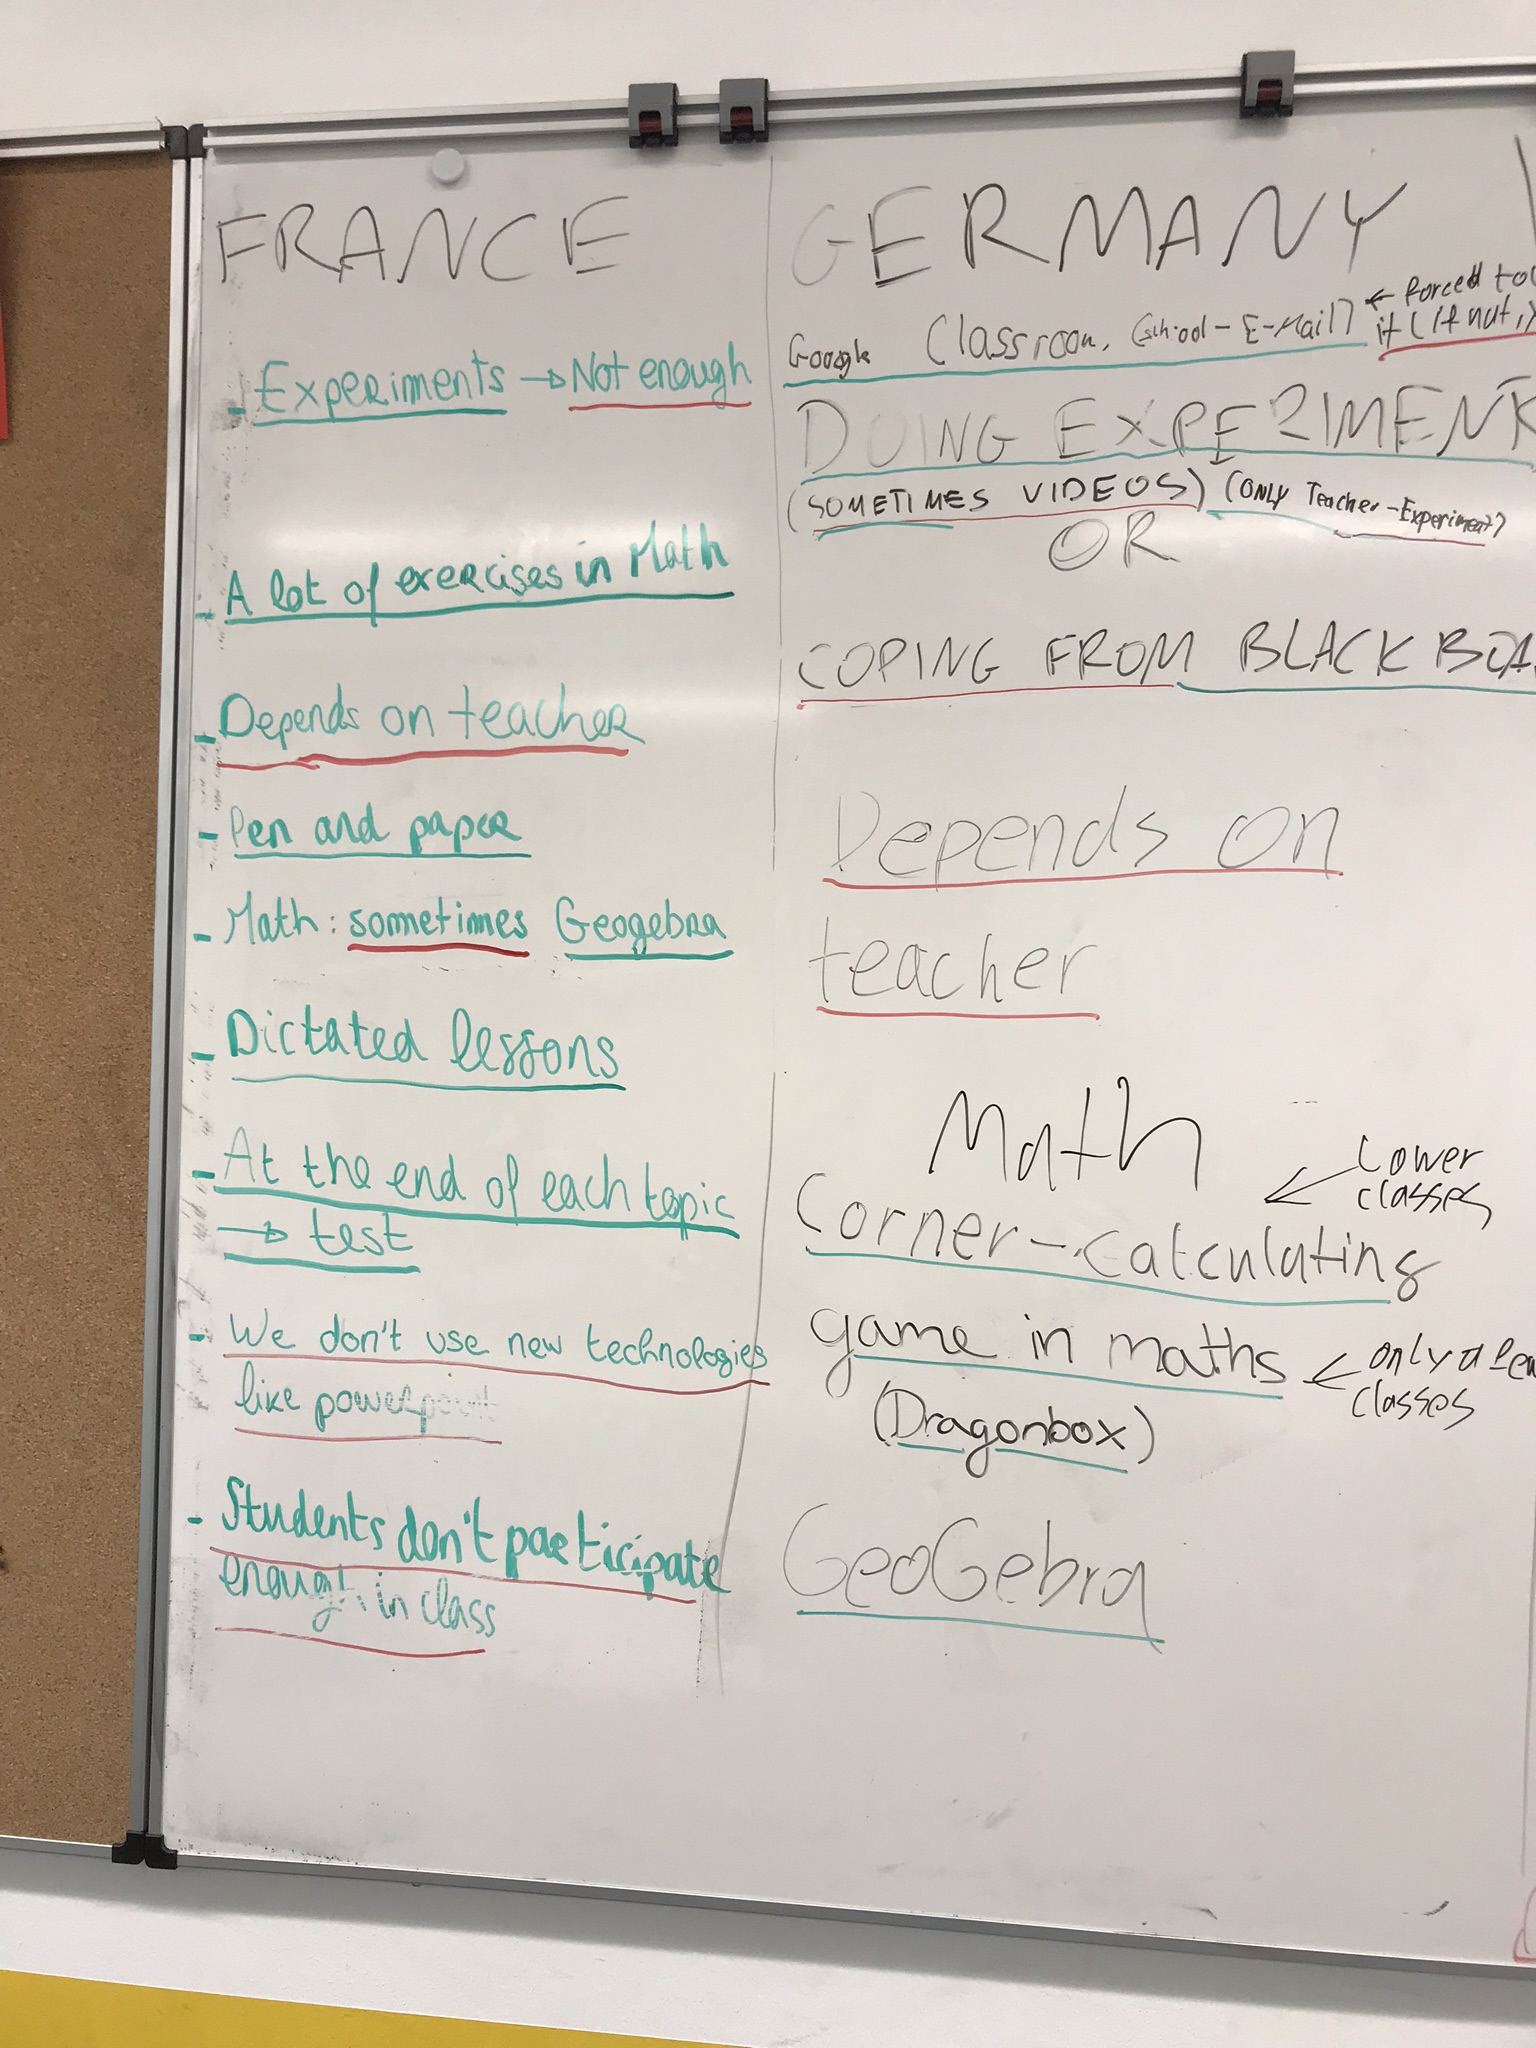 FRANCE
- Experiments → Not enough
- A lot of exercises in Math
- Depends on teacher
- Pen and paper
- Math : sometimes Geogebra
- Dictated lessons
- At the end of each topic
→ test
- We don't use new technologies
like powerpoint
- Students don't participate
enough in class
GERMANY
← forced to
Google Classroom, (school-E-Mail) it (if not,
DOING EXPERIMENT
(SOMETIMES VIDEOS) (ONLY Teacher-Experiment)
OR
COPING FROM BLACKBOA
Depends on
teacher
Math
Lower
classes
Corner-calculating
game in maths ← only a few
classes
(Dragonbox)
GeoGebra